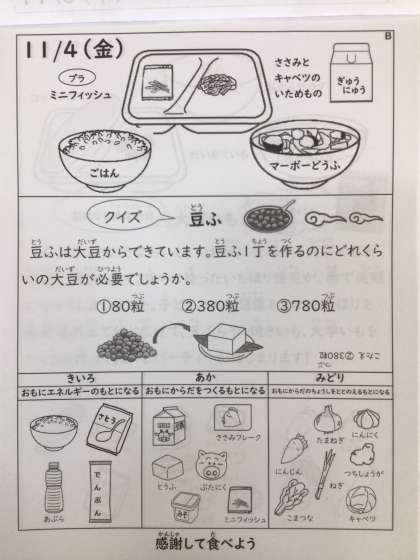 B
11/4(金)
プラ
ミニフィッシュ
ささみと
キャベツの
いためもの
ぎゅう
にゅう
ごはん
マーボーどうふ
クイズ
豆ふ
とう
豆ふは大豆からできています。豆ふ1丁を作るのにどれくら
とう だいず とう ちょう つく
いの大豆が必要でしょうか。
だいず ひつよう
①80粒 ②380粒 ③780粒
つぶ つぶ つぶ
こたえ ②380粒
つぶ
きいろ
おもにエネルギーのもとになる
あか
おもにからだをつくるもとになる
みどり
おもにからだのちょうしをととのえるもとになる
さとう
あぶら
でんぷん
ささみフレーク
とうふ
ぶたにく
みそ
ミニフィッシュ
たまねぎ
にんにく
にんじん
つちしょうが
ねぎ
こまつな
キャベツ
感謝して食べよう
かんしゃ た